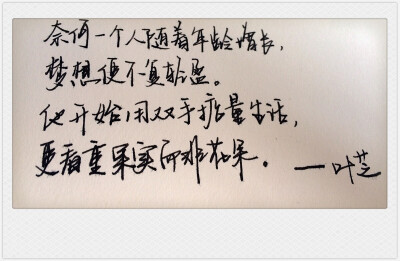 奈何一个人随着年龄增长，
梦想便不复轻盈。
他开始用双手掂量生活，
更看重果实而非花朵。
——叶芝